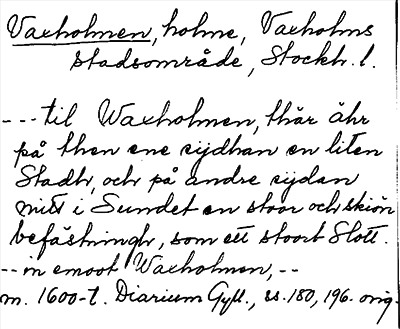 Vaxholmen, holme, Vaxholms
stadsområde, Stockh. l.
---til Waxholmen, thär ähr
på then ene sijdhan en liten
Stadh, och på andre sijdan
mitt i Sundet en stoor och skiön
befästningh, som ett stoort Slott.
--in emoot Waxholmen, --
m. 1600-t. Diarium Gyll., ss. 180, 196. orig.